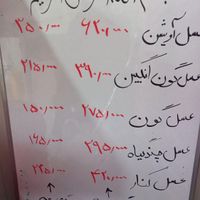 عسل آویشن ۶۲۰,۰۰۰ ۳۵۰,۰۰۰
عسل گون انگبین ۳۹۰,۰۰۰ ۲۱۵,۰۰۰
عسل گون ۲۷۵,۰۰۰ ۱۵۰,۰۰۰
عسل چندگیاه ۲۹۵,۰۰۰ ۱۶۵,۰۰۰
عسل کنار ۴۲۰,۰۰۰ ۲۲۵,۰۰۰